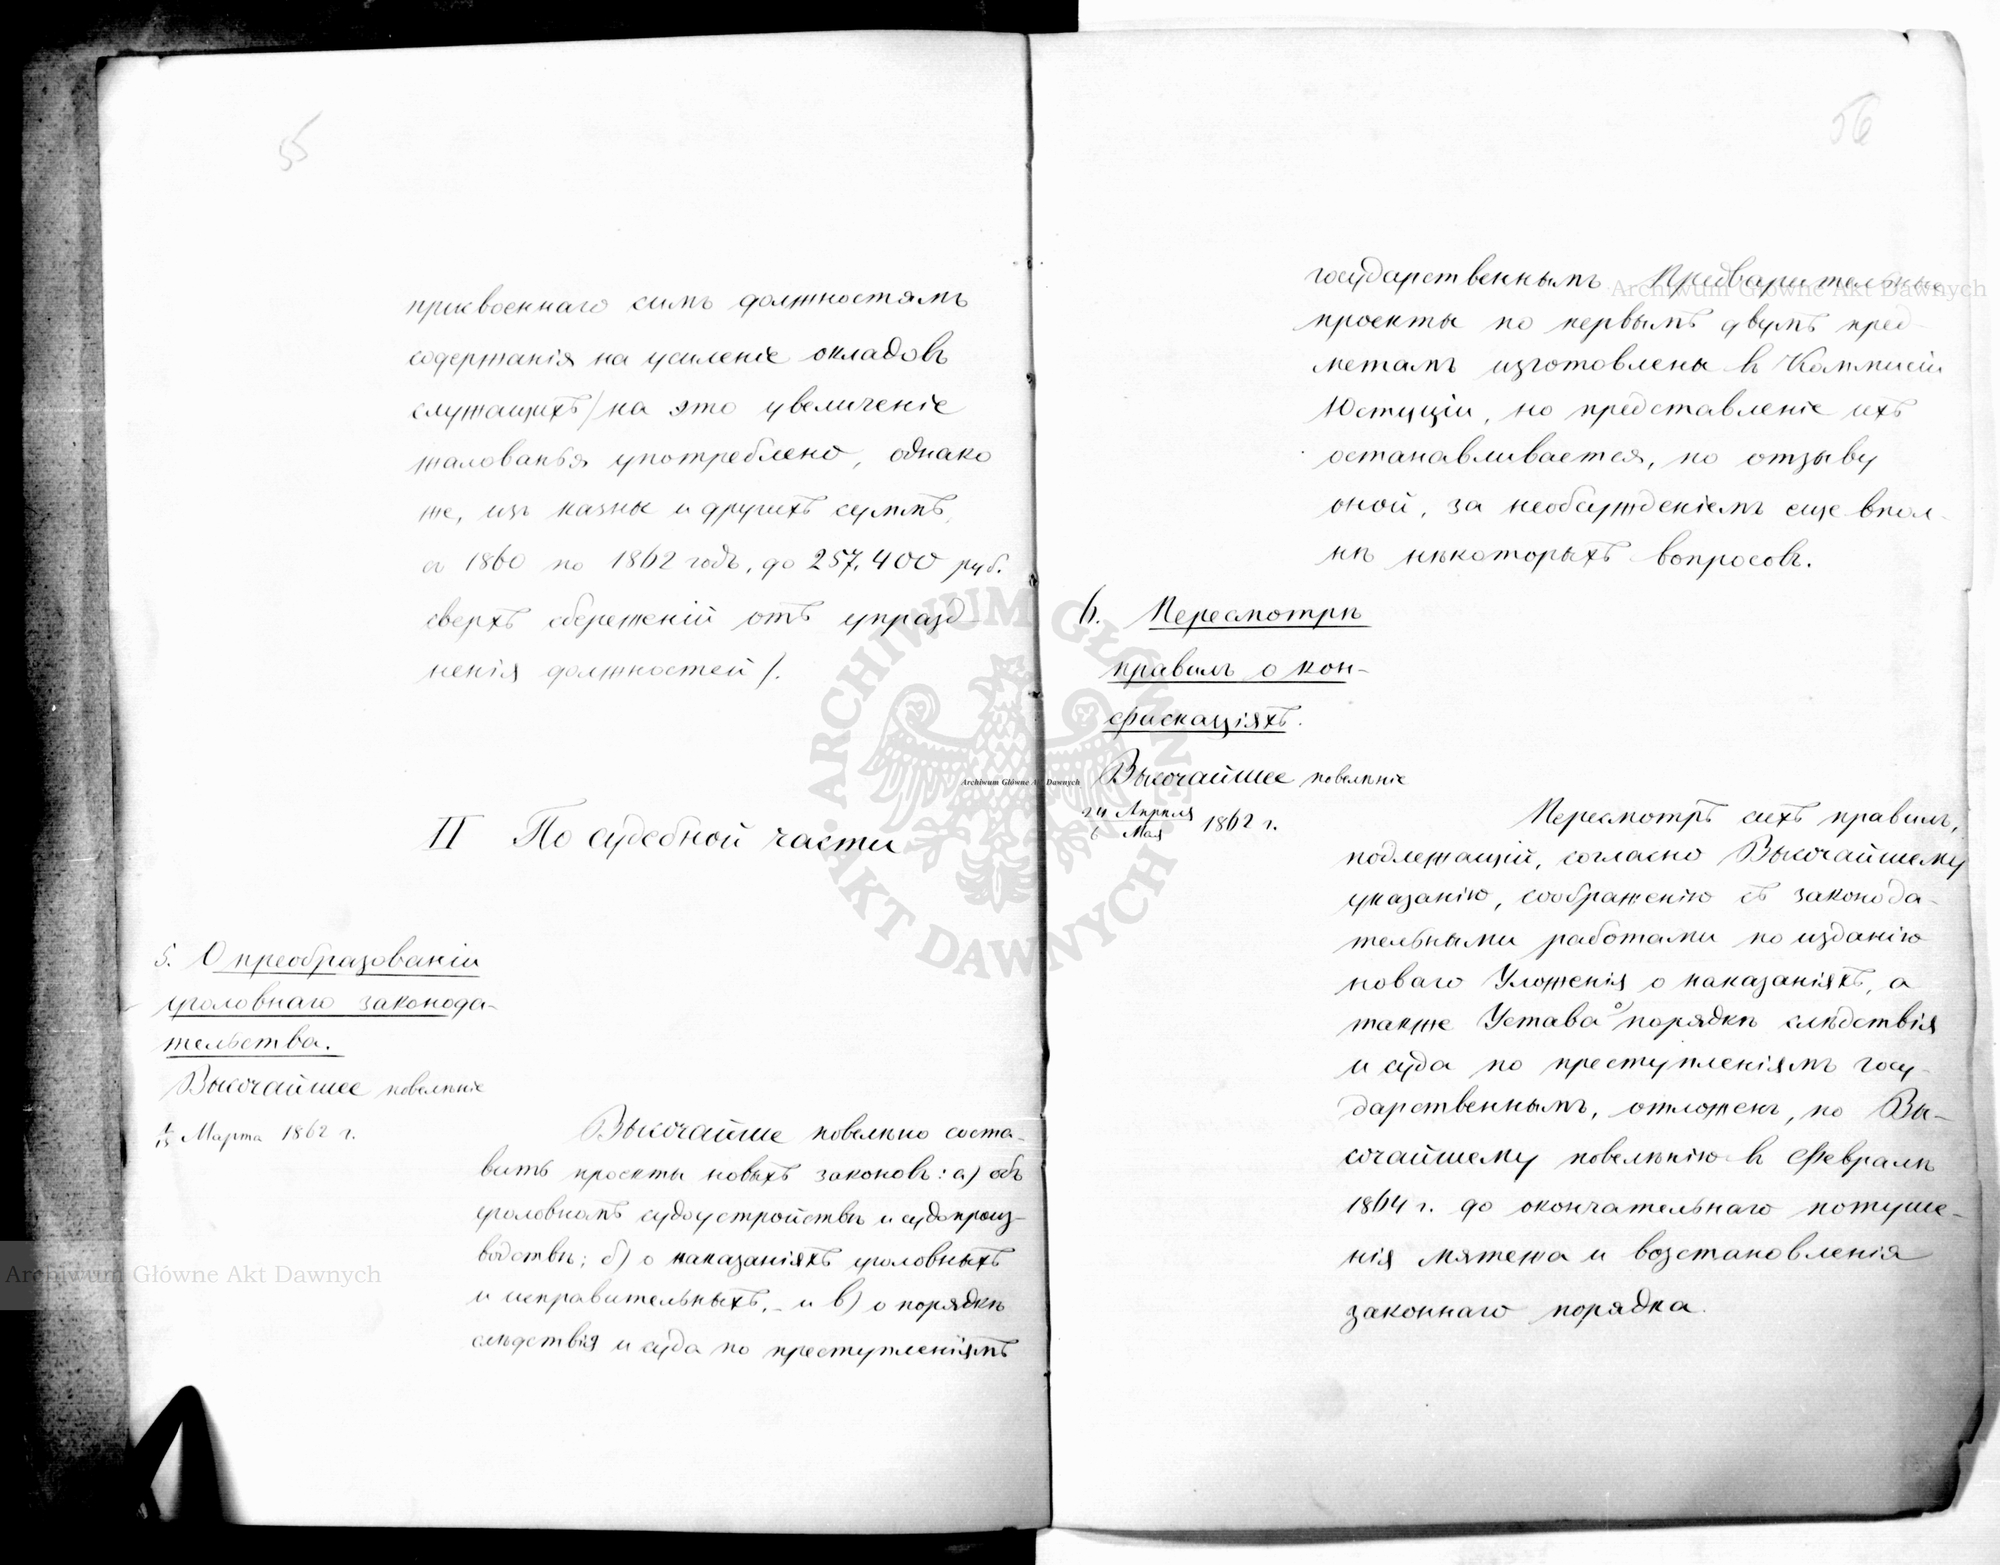 55
присвоеннаго симъ должностямъ
содержанія на усиленіе окладовъ
служащихъ/на это увеличеніе
жалованья употреблено, однако
же, изъ казны и другихъ суммъ,
съ 1860 по 1862 годъ, до 257.400 руб.
сверхъ сбереженій отъ упразд-
ненія должностей/.
II По судебной части
5. О преобразованіи
уголовнаго законода-
тельства.
Высочайшее повелѣніе
1/13 Марта 1862 г.
Высочайше повелѣно соста-
вить проекты новыхъ законовъ: а) объ
уголовномъ судоустройствѣ и судопроиз-
водствѣ; б) о наказаніяхъ уголовныхъ
и исправительныхъ, - и в) о порядкѣ
слѣдствія и суда по преступленіямъ
56
государственнымъ. Предварительные
проекты по первымъ двумъ пред-
метамъ изготовлены въ Коммисіи
Юстиціи, но представленіе ихъ
останавливается, по отзыву
оной, за необсужденіемъ еще впол-
нѣ нѣкоторыхъ вопросовъ.
6. Пересмотръ
правилъ о кон-
фискаціяхъ.
Высочайшее повелѣніе
24 Апрѣля/6 Мая 1862 г.
Пересмотръ сихъ правилъ,
подлежащій, согласно Высочайшему
указанію, соображенію съ законода-
тельными работами по изданію
новаго Уложенія о наказаніяхъ, а
также Устава о порядкѣ слѣдствія
и суда по преступленіямъ госу-
дарственнымъ, отложенъ, по Вы-
сочайшему повелѣнію въ Февралѣ
1864 г. до окончательнаго потуше-
нія мятежа и возстановленія
законнаго порядка.
Archiwum Główne Akt Dawnych
Archiwum Główne Akt Dawnych
Archiwum Główne Akt Dawnych
ARCHIWUM GŁÓWNE AKT DAWNYCH